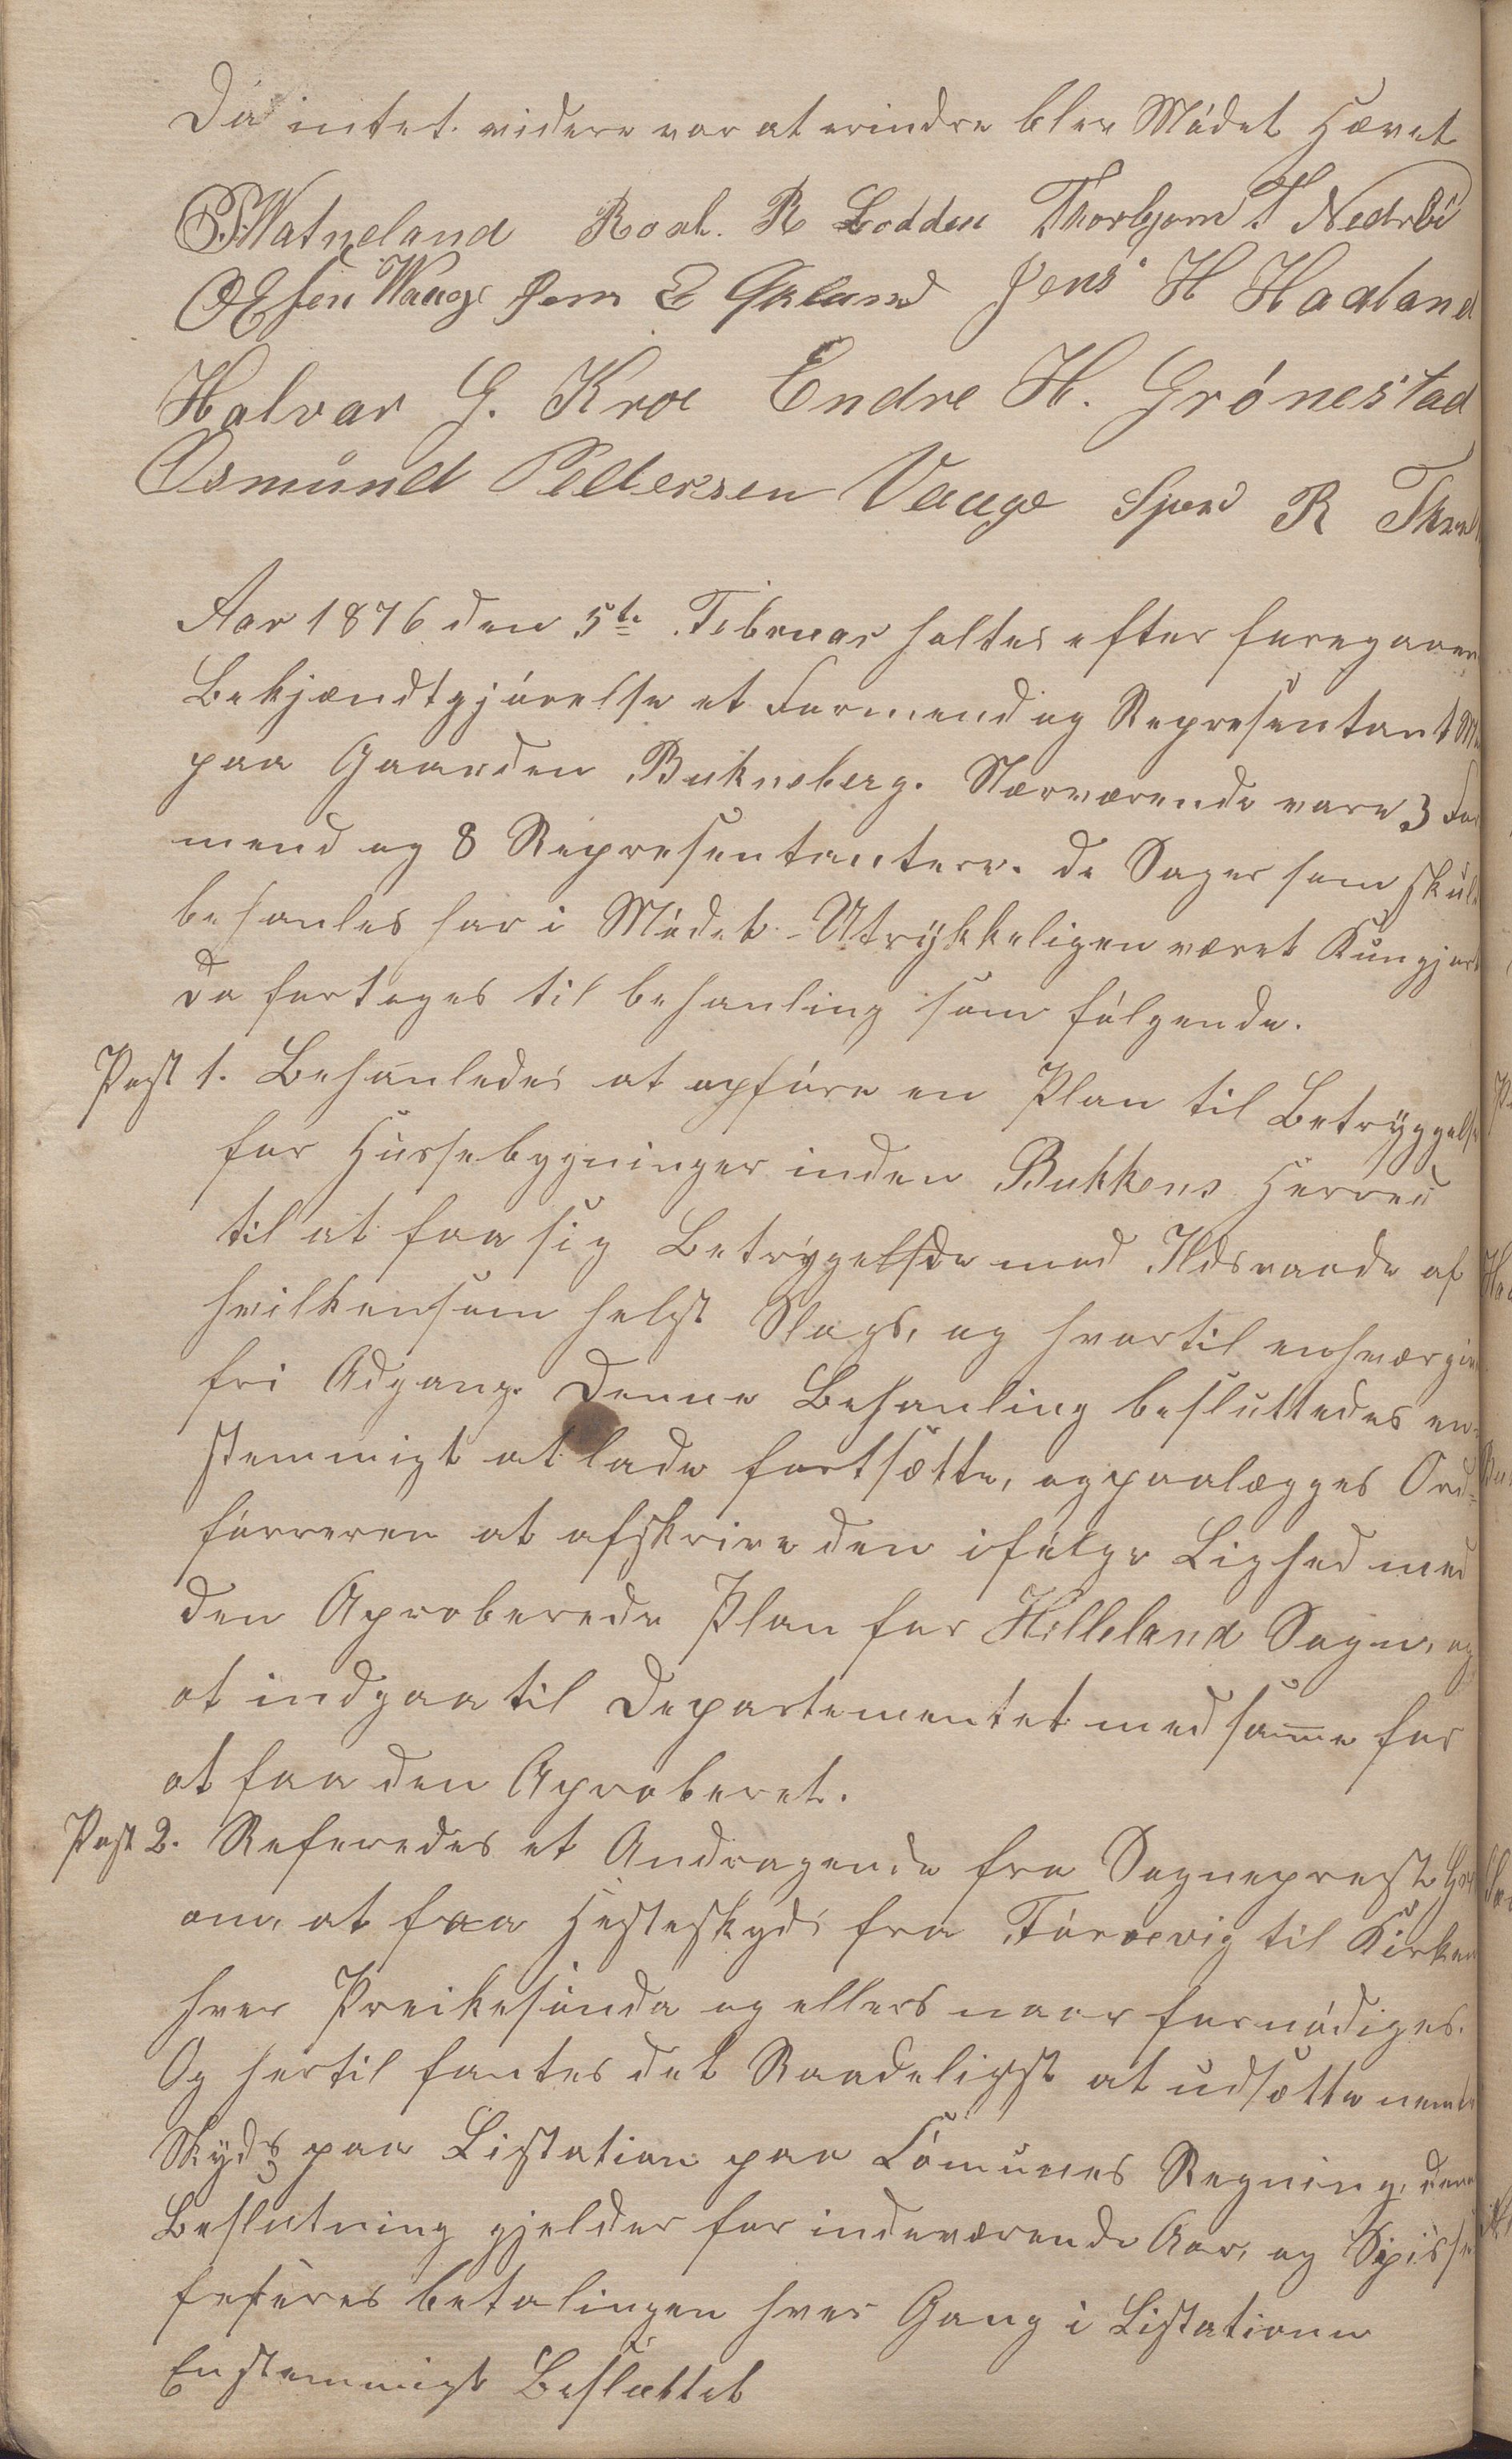 Da intet videre var at erindre blev Mødet Hævet
Watneland Roal. R Lodden Thorbjørn T Nedrbø
Jens H Haaland
Halvar G. Kroe Endre H. Grónestad
Osmund Pedersen Vaage R
Aar 1876 den 5te Februar holtes efter foregaaen
Bekjændtgjørelse et Formend og Representant
paa Gaarden Bukneberg. Nærværende vare 3 For
mend og 8 Representantere. de Sager som skul
behanles har i Mødet Utrykkeligen været Kungjort
Da fortoges til behanling som følgende.
Post 1. Behanledes at opføre en Plan til Betryggelse
for Hussebygninger inden Bukkens Herred
til at faa sig Betrygelsse med Ildsvaade af
hvilkensom helst Slags, og hvortil enhver gives
fri Adgang. Denne Behanling besluttedes en-
stemmigt at lade fortsætte, og paalægges Ord-
førreren at afskrive den ifølge Lighed med
den Aproberede Plan for Hilleland Sogn, og
at indgaa til Departementet med samme for
at faa den Aproberet.
Post 2. Referedes et Andragende fra Sogneprest
om, at faa Hesteskyds fra Førrevig til Kirken
hver Preikesønda og ellers naar fornødiges.
Og hertil fantes det Raadeligst at udsætte nemte
Skyds paa Listation paa Comunes Regning, denne
Beslutning gjelder for indeværende Aar, og Spisse
feseres betalingen hver Gang i Listationen
Enstemmigt Besluttet